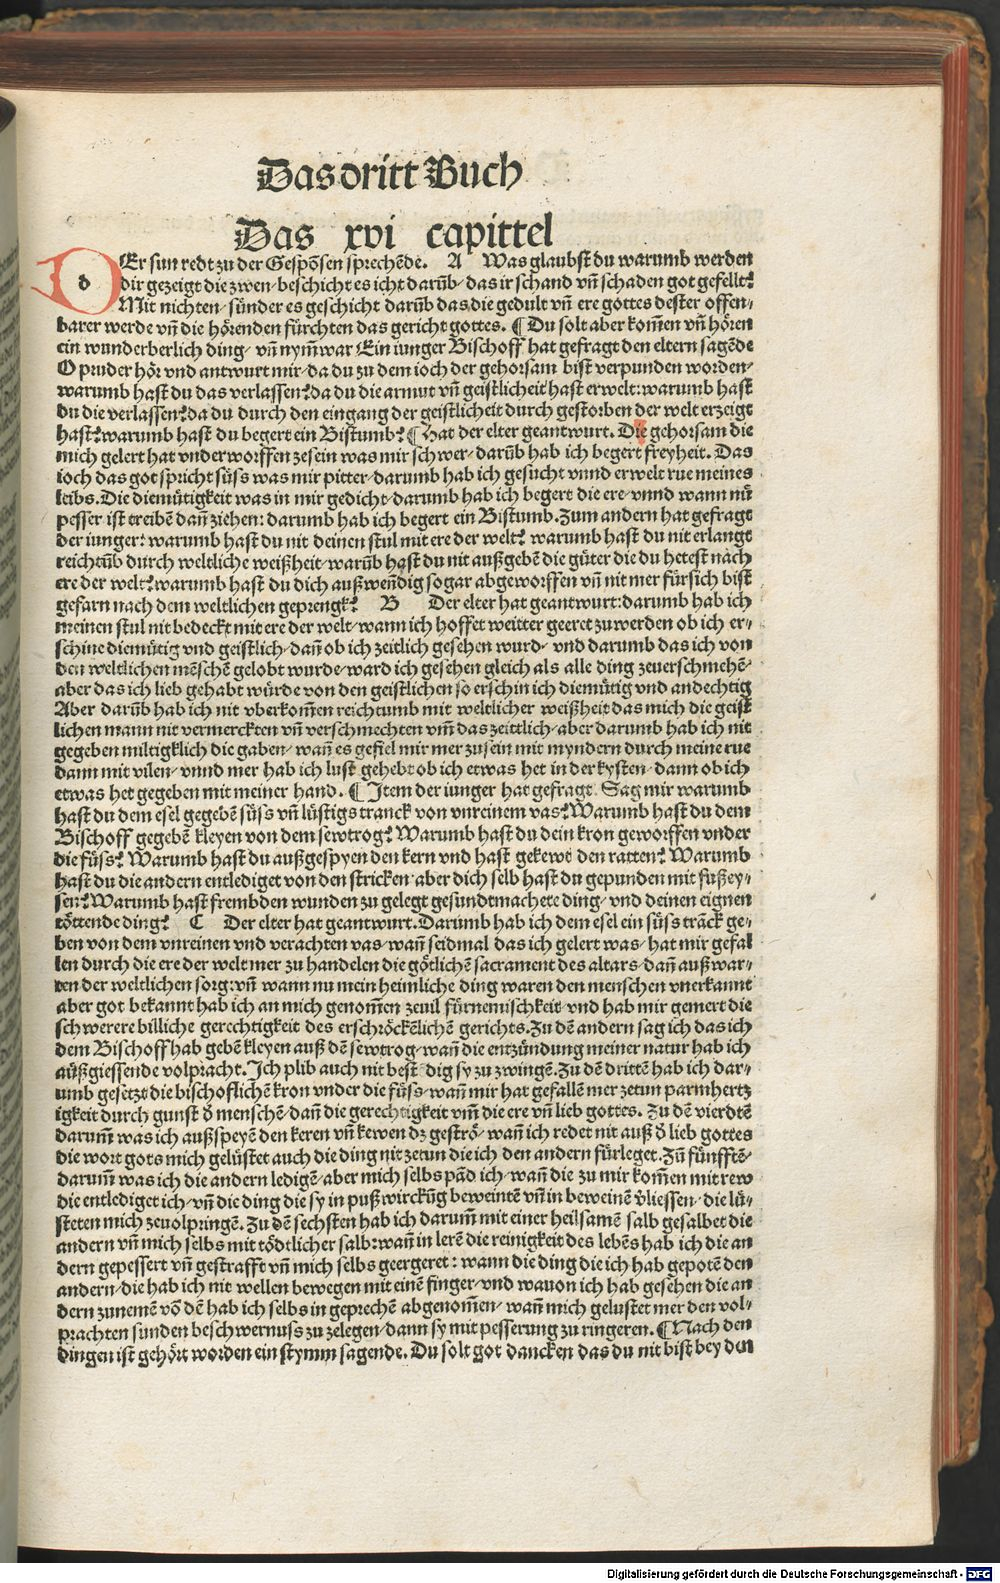 Das dritt Buch
Das xvi capittel
dEr sun redt zu der Gespōsen sprechēde. A Was glaubst du warumb werden
dir gezeigt die zwen/ beschicht es icht darūb/ das ir schand vn̄ schaden got gefellt?
Mit nichten/ sünder es geschicht darūb das die gedult vn̄ ere gottes dester offen/
barer werde vn̄ die hörenden fürchten das gericht gottes. ¶ Du solt aber kom̄en vn̄ hören
ein wunderberlich ding/ vn̄ nym̄ war Ein iunger Bischoff hat gefragt den eltern sagēde
O pruder hör vnd antwurt mir/ da du zu dem ioch der gehorsam bist verpunden worden/
warumb hast du das verlassen? da du die armut vn̄ geistlicheit hast erwelt: warumb hast
du die verlassen? da du durch den eingang der geistlicheit durch gestorben der welt erzeigt
hast? warumb hast du begert ein Bistumb? ¶ Hat der elter geantwurt. Die gehorsam die
mich gelert hat vnderworffen zesein was mir schwer/ darūb hab ich begert freyheit. Das
ioch das got spricht süss was mir pitter/ darumb hab ich gesucht vnnd erwelt rue meines
leibs. Die diemütigkeit was in mir gedicht/ darumb hab ich begert die ere/ vnnd wann nū
pesser ist treibē dan̄ ziehen: darumb hab ich begert ein Bistumb. Zum andern hat gefragt
der iunger: warumb hast du nit deinen stul mit ere der welt? warumb hast du nit erlangt
reichtūb durch weltliche weißheit/ warūb hast du nit außgebē die güter die du hetest nach
ere der welt? warumb hast du dich außwēdig sogar abgeworffen vn̄ nit mer fürsich bist
gefarn nach dem weltlichen geprengk? B Der elter hat geantwurt: darumb hab ich
meinen stul nit bedeckt mit ere der welt/ wann ich hoffet weitter geeret zuwerden ob ich er/
schine diemütig vnd geistlich/ dan̄ ob ich zeitlich gesehen wurd/ vnd darumb das ich von
den weltlichen mēschē gelobt wurde/ ward ich gesehen gleich als alle ding zeuerschmehē/
aber das ich lieb gehabt würde von den geistlichen so erschin ich diemütig vnd andechtig
Aber darūb hab ich nit vberkom̄en reichtumb mit weltlicher weißheit das mich die geist
lichen mann nit vermerckten vn̄ verschmechten vm̄ das zeittlich/ aber darumb hab ich nit
gegeben miltigklich die gaben/ wan̄ es gefiel mir mer zusein mit myndern durch meine rue
dann mit vilen/ vnnd mer hab ich lust gehebt ob ich etwas het in der kysten/ dann ob ich
etwas het gegeben mit meiner hand. ¶ Item der iunger hat gefragt. Sag mir warumb
hast du dem esel gegebē süss vn̄ lüstigs tranck von vnreinem vas? Warumb hast du dem
Bischoff gegebē kleyen von dem sewtrog? Warumb hast du dein kron geworffen vnder
die füss? Warumb hast du außgespyen den kern vnd hast gekewt den ratten? Warumb
hast du die andern entlediget von den stricken/ aber dich selb hast du gepunden mit fußey/
sen? Warumb hast frembden wunden zu gelegt gesundtmachete ding/ vnd deinen eignen
töttende ding? C Der elter hat geantwurt. Darumb hab ich dem esel ein süss trāck ge/
ben von dem vnreinen vnd verachten vas/ wan̄ seidmal das ich gelert was/ hat mir gefal
len durch die ere der welt mer zu handelen die götlichē sacrament des altars/ dan̄ auß war/
ten der weltlichen sorg: vn̄ wann nu mein heimliche ding waren den menschen vnerkannt
aber got bekannt hab ich an mich genom̄en zeuil fürnemischkeit/ vnd hab mir gemert die
schwerere billiche gerechtigkeit des erschröckēlichē gerichts. Zu dē andern sag ich das ich
dem Bischoff hab gebē kleyen auß dē sewtrog/ wan̄ die entzündung meiner natur hab ich
außgiessende volpracht. Ich plib auch nit best dig sy zu zwingē. Zu dē dritten hab ich dar/
umb gesetzt die bischoflichē kron vnder die füss/ wan̄ mir hat gefallē mer zetun parmhertz
igkeit durch gunst d̄ menschē/ dan̄ die gerechtigkeit vm̄ die ere vn̄ lieb gottes. Zu dē vierdtē
darum̄ was ich außspeyē den keren vn̄ kewen dz geströ/ wan̄ ich redet nit auß d̄ lieb gottes
die wort gots mich gelüstet auch die ding nit zetun die ich den andern fürleget. Zū fünfftē/
darum̄ was ich die andern ledigē/ aber mich selbs pād ich/ wan̄ die zu mir kom̄en mit rew
die entlediget ich/ vn̄ die ding die sy in puß wirckūg beweintē vn̄ in beweinē v̄liessen/ die lü/
steten mich zeuolpringē. Zu dē sechsten hab ich darum̄ mit einer heilsamē salb gesalbet die
andern vn̄ mich selbs mit tödtlicher salb: wan̄ in lerē die reinigkeit des lebēs hab ich die an
dern gepessert vn̄ gestrafft vn̄ mich selbs geergeret: wann die ding die ich hab gepotē den
andern/ die hab ich nit wellen bewegen mit einē finger/ vnd wauon ich hab gesehen die an
dern zunemē vō dē hab ich selbs in geprechē abgenom̄en/ wan̄ mich gelustet mer den vol/
prachten sunden beschwernuss zu zelegen/ dann sy mit pesserung zu ringeren. ¶ Nach den
dingen ist gehört worden ein stymm sagende. Du solt got dancken das du nit bist bey den
Digitalisierung gefördert durch die Deutsche Forschungsgemeinschaft - DFG